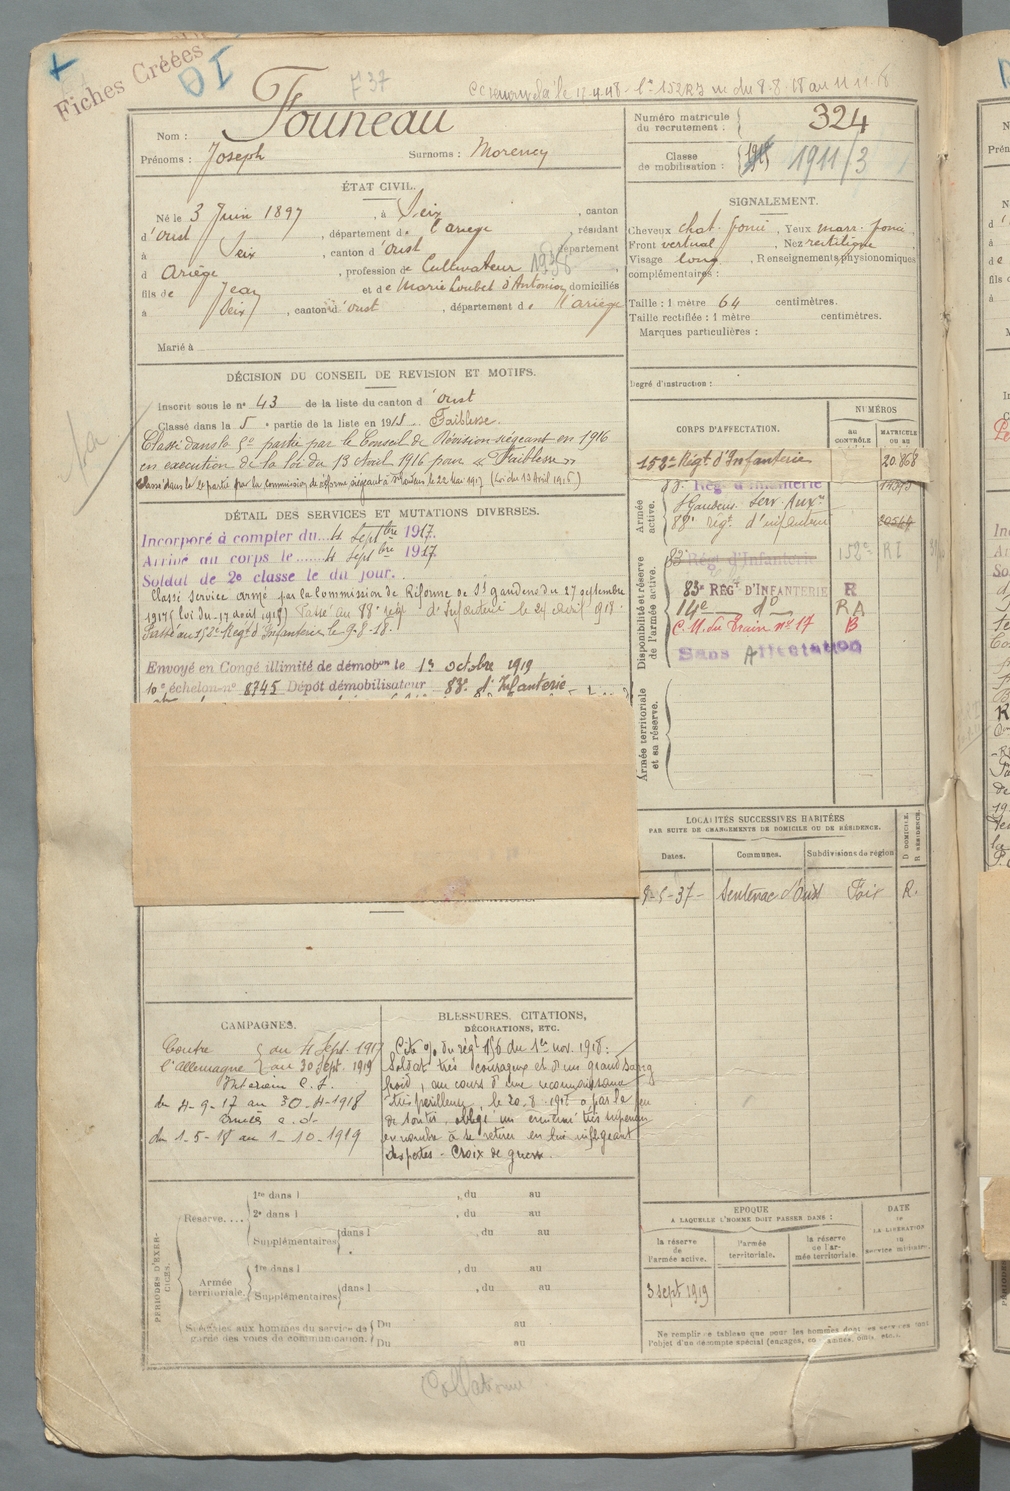 Fiches Créées
DI
737
Nom : Founeau
Prénoms : Joseph Surnoms : Moreney
Numéro matricule du recrutement : 324
Classe de mobilisation : 1911/3
ÉTAT CIVIL.
Né le 3 Juin 1897, à Seix, canton
d'oust, département de l'ariege, résidant
à Seix, canton d'oust, département
d Ariège, profession de Cultivateur 1938
fils de Jean et de Marie Loubet d'Antonion, domiciliés
à Seix, canton d'oust, département de l'ariege
Marié à
SIGNALEMENT.
Cheveux chat. foncé, Yeux marr. foncé,
Front vertical, Nez rectiligne
Visage long, Renseignements physionomiques
complémentaires :
Taille : 1 mètre 64 centimètres.
Taille rectifiée : 1 mètre centimètres.
Marques particulières :
Degré d'instruction :
DÉCISION DU CONSEIL DE REVISION ET MOTIFS.
Inscrit sous le n° 43 de la liste du canton d'oust
Classé dans la 5e partie de la liste en 191 Faiblesse.
Classé dans la 5e partie par le Conseil de Révision siégeant en 1916
en exécution de la loi du 13 Avril 1916 pour « Faiblesse »
Classé dans le 2e partie par la commission de réforme siégeant à St Gaudens le 22 Mai 1917 (Loi du 13 Avril 1916)
DÉTAIL DES SERVICES ET MUTATIONS DIVERSES.
Incorporé à compter du 4 Septbre 1917.
Arrivé au corps le 4 Septbre 1917
Soldat de 2e classe le du jour.
Classé service armé par la Commission de Réforme de St gaudens du 27 septembre
1917 (loi du 17 août 1917) Passé au 88e rég d'Infanterie le 24 avril 1918.
Passé au 152e Régt d'Infanterie le 9-8-18.
Envoyé en Congé illimité de démobon le 13 octobre 1919
10e échelon n° 8745 Dépôt démobilisateur 83e d'Infanterie
CORPS D'AFFECTATION.
NUMÉROS
AU CONTRÔLE
MATRICULE OU AU
152e Régt d'Infanterie 20.868
83e Rég. d'Infanterie
St Gaudens Serv. Auxre
88e régt d'infanterie
Armée active.
83e Rég. d'Infanterie 152e RI
83e RÉGT D'INFANTERIE R
14e do RA
C.M. du Train no 17 B
Sans Affectation
Disponibilité et réserve de l'armée active.
Armée territoriale et sa réserve.
LOCALITÉS SUCCESSIVES HABITÉES
PAR SUITE DE CHANGEMENTS DE DOMICILE OU DE RÉSIDENCE.
Dates. Communes. Subdivisions de région
D DOMICILE.
R RÉSIDENCE.
9-5-37- Sentenac d'Oust Foix R.
CAMPAGNES.
Contre l'Allemagne { du 4 Sept. 1917
au 30 Sept. 1919
Intérieur C.S.
du 4-9-17 au 30-4-1918
armées c.d.
du 1-5-18 au 1-10-1919
BLESSURES, CITATIONS,
DÉCORATIONS, ETC.
Cité o/ du régt 156 du 1er nov. 1918 :
Soldat très courageux et d'un grand sang
froid, au cours d'une reconnaissance
très périlleuse, le 20.8.1918 a par le feu
obligé un ennemi très supérieur
en nombre à se retirer en lui infligeant
des pertes - Croix de guerre.
PÉRIODES D'EXERCICES.
Réserve....
1re dans l , du au
2e dans l , du au
Supplémentaires dans l , du au
Armée territoriale.
1re dans l , du au
Supplémentaires dans l , du au
Spéciales aux hommes du service de garde des voies de communication.
Du au
Du au
EPOQUE
A LAQUELLE L'HOMME DOIT PASSER DANS :
la réserve de l'armée active.
l'armée territoriale.
la réserve de l'armée territoriale.
DATE
DE LA LIBÉRATION DU service militaire.
3 sept 1919
Ne remplir ce tableau que pour les hommes dont les services sont
l'objet d'un décompte spécial (engagés, omis, etc.).
Collationné